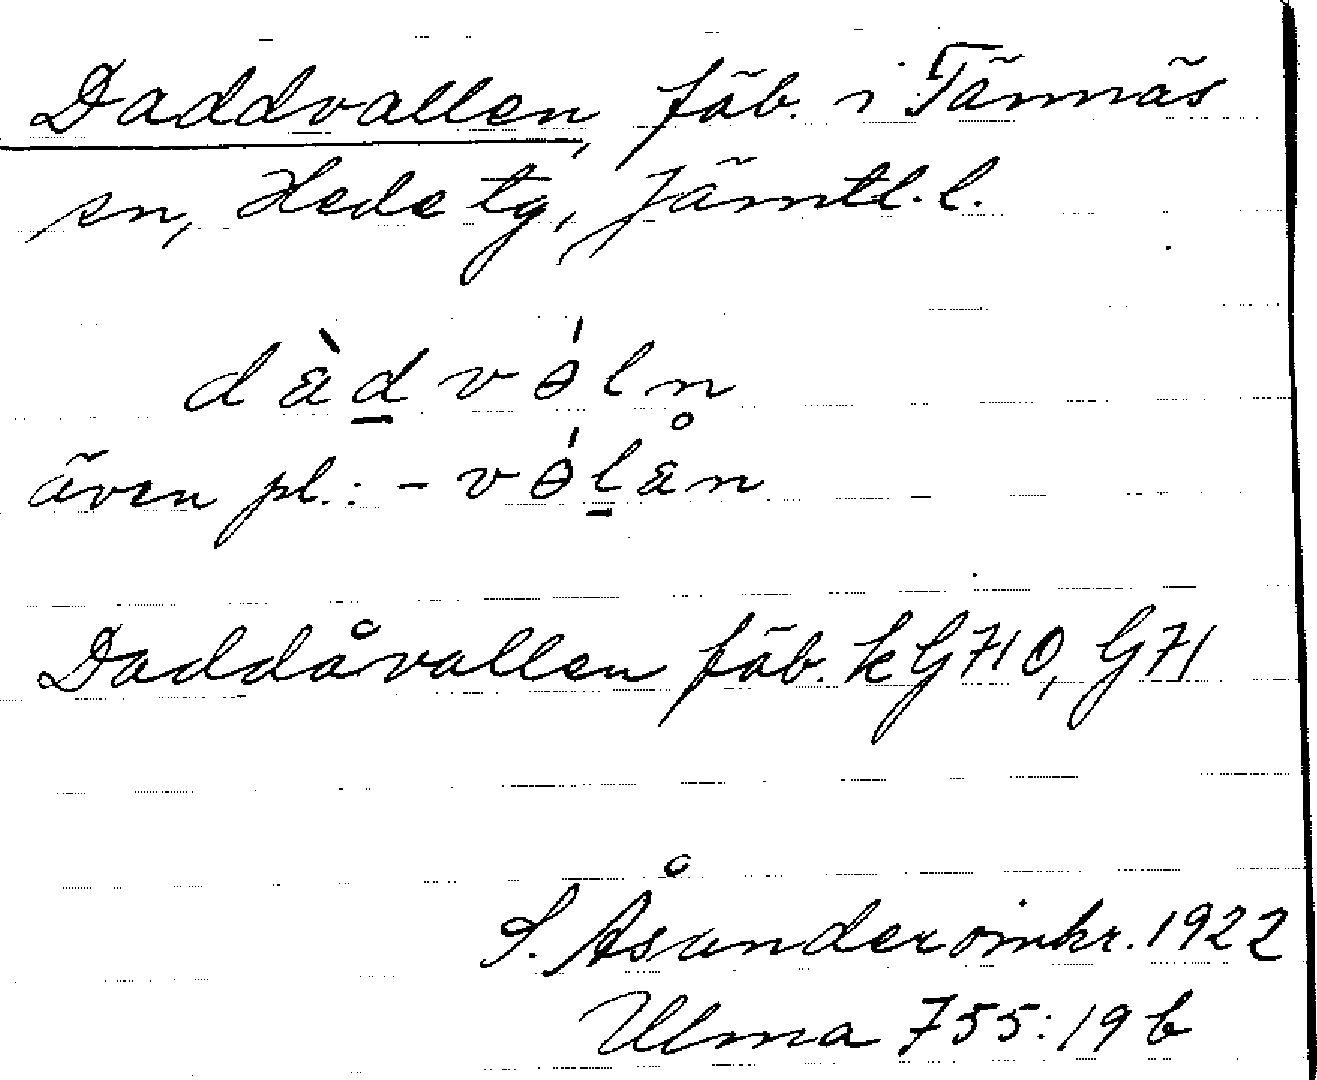 Daddvallen, fäb. i Tännäs
sn, Hede tg, Jämtl. l.
dàdvə́ln
även pl.: -və́lån
Daddåvallen fäb. k G71 Ö, G71
S. Åsander omkr. 1922
Ulma 755:19 b